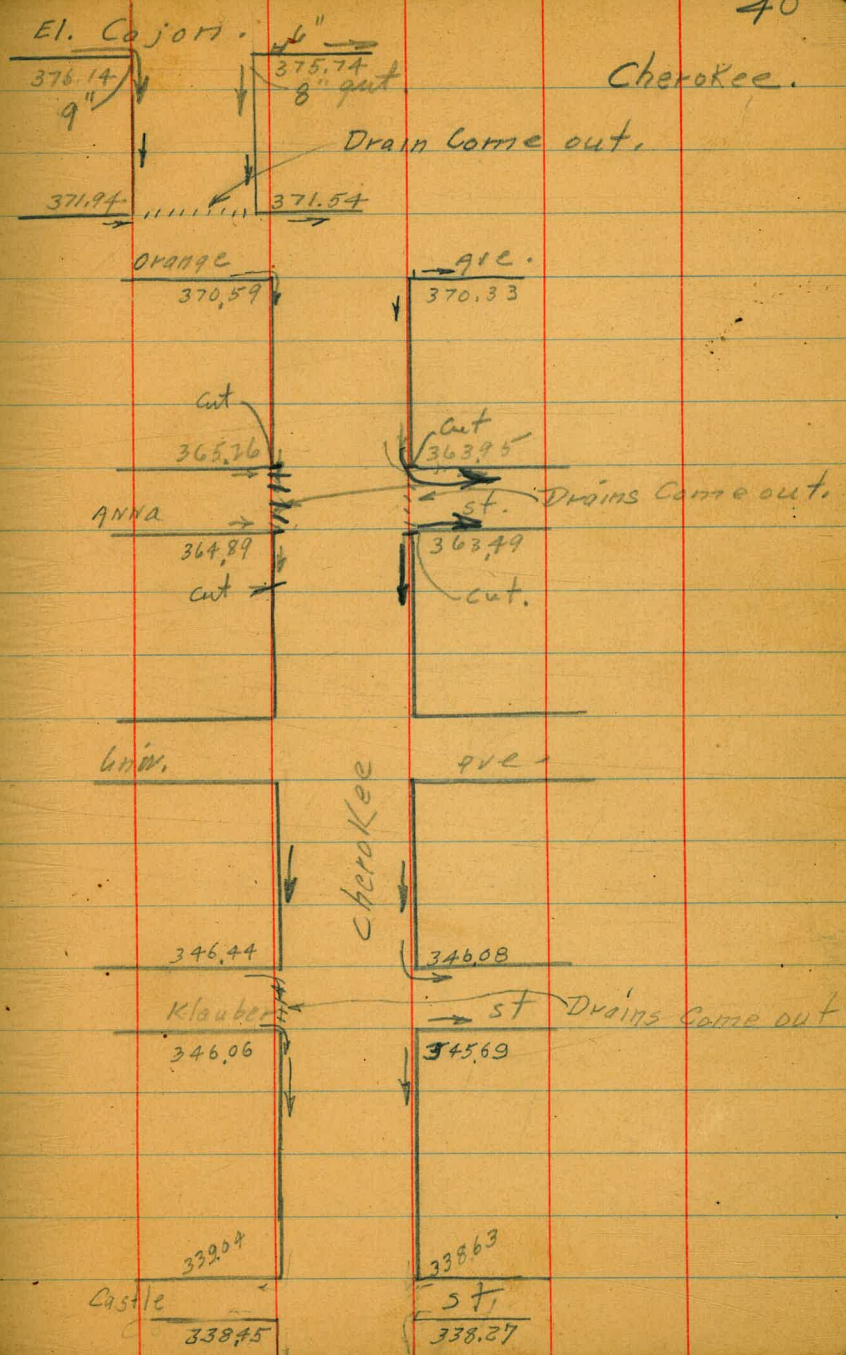 40
El. Cajon. 6"
376.14 375.74 Cherokee.
9" 8" gut
Drain Come out.
371.94 371.54
Orange ave.
370.59 370.33
cut cut
365.26 363.95
Drains Come out.
ANNA st.
364.89 363.49
cut cut.
Univ. ave.
Cherokee
346.44 346.08
Klauber st Drains Come out
346.06 345.69
339.04 338.63
Castle st.
338.45 338.27